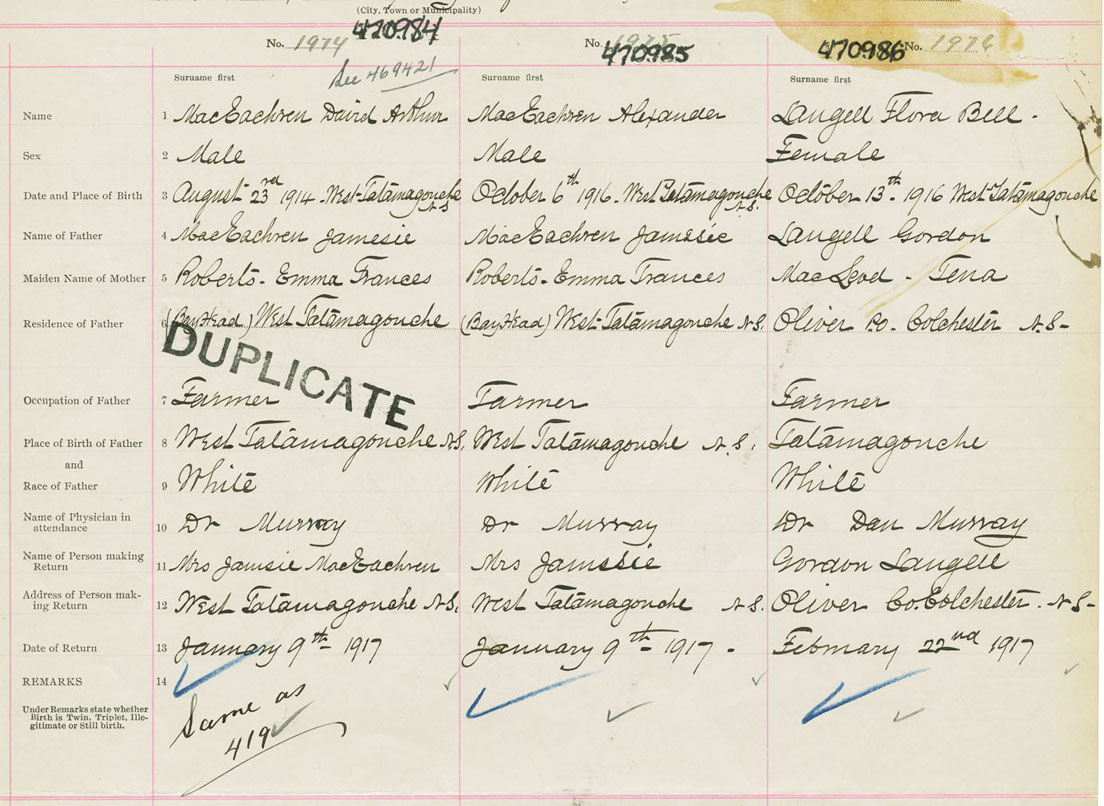 (City, Town or Municipality)
No. 1974 470984
No. 1975 470985
470986 No. 1976
See 469421
Surname first Surname first Surname first
Name 1 MacEachren David Arthur MacEachren Alexander Langell Flora Bell.
Sex 2 Male Male Female
Date and Place of Birth 3 August 23rd 1914. West Tatamagouche N.S. October 6th 1916. West Tatamagouche N.S. October 13th 1916 West Tatamagouche
Name of Father 4 MacEachren Jamesie MacEachren Jamssie Langell Gordon
Maiden Name of Mother 5 Roberts. Emma Frances Roberts. Emma Frances MacLeod - Tena
Residence of Father 6 (Bay Head) West Tatamagouche (Bay Head) West Tatamagouche N.S. Oliver Po. Colchester N.S-
DUPLICATE
Occupation of Father 7 Farmer Farmer Farmer
Place of Birth of Father 8 West Tatamagouche N.S. West Tatamagouche N.S. Tatamagouche
and
Race of Father 9 White White White
Name of Physician in attendance 10 Dr Murray Dr Murray Dr Dan Murray
Name of Person making Return 11 Mrs Jamsie MacEachren Mrs Jamssie Gordon Langell
Address of Person making Return 12 West Tatamagouche N.S. West Tatamagouche N.S. Oliver Co. Colchester. N.S-
Date of Return 13 January 9th 1917 January 9th 1917. February 22nd 1917
REMARKS 14
Under Remarks state whether
Birth is Twin, Triplet, Ille-
gitimate or Still birth.
Same as
419